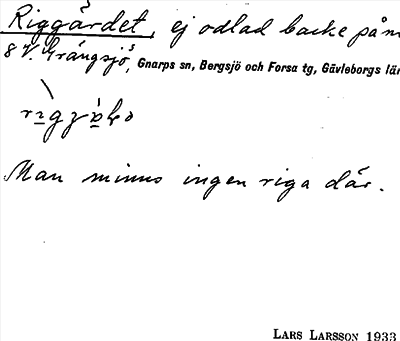 Riggärdet, ej odlad backe på n
8 V. Grängsjö, Gnarps sn, Bergsjö och Forsa tg, Gävleborgs län
Man minns ingen riga där.
LARS LARSSON 1933